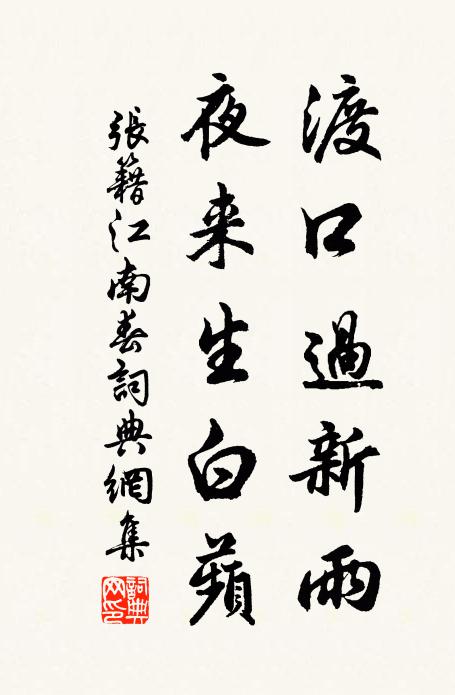 渡口過新雨
夜来生白蘋
張籍江南春詞典網集
詞典網印